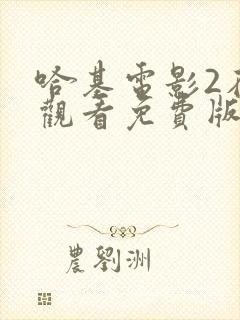 哈基電影2在
觀看免費版
農劉洲